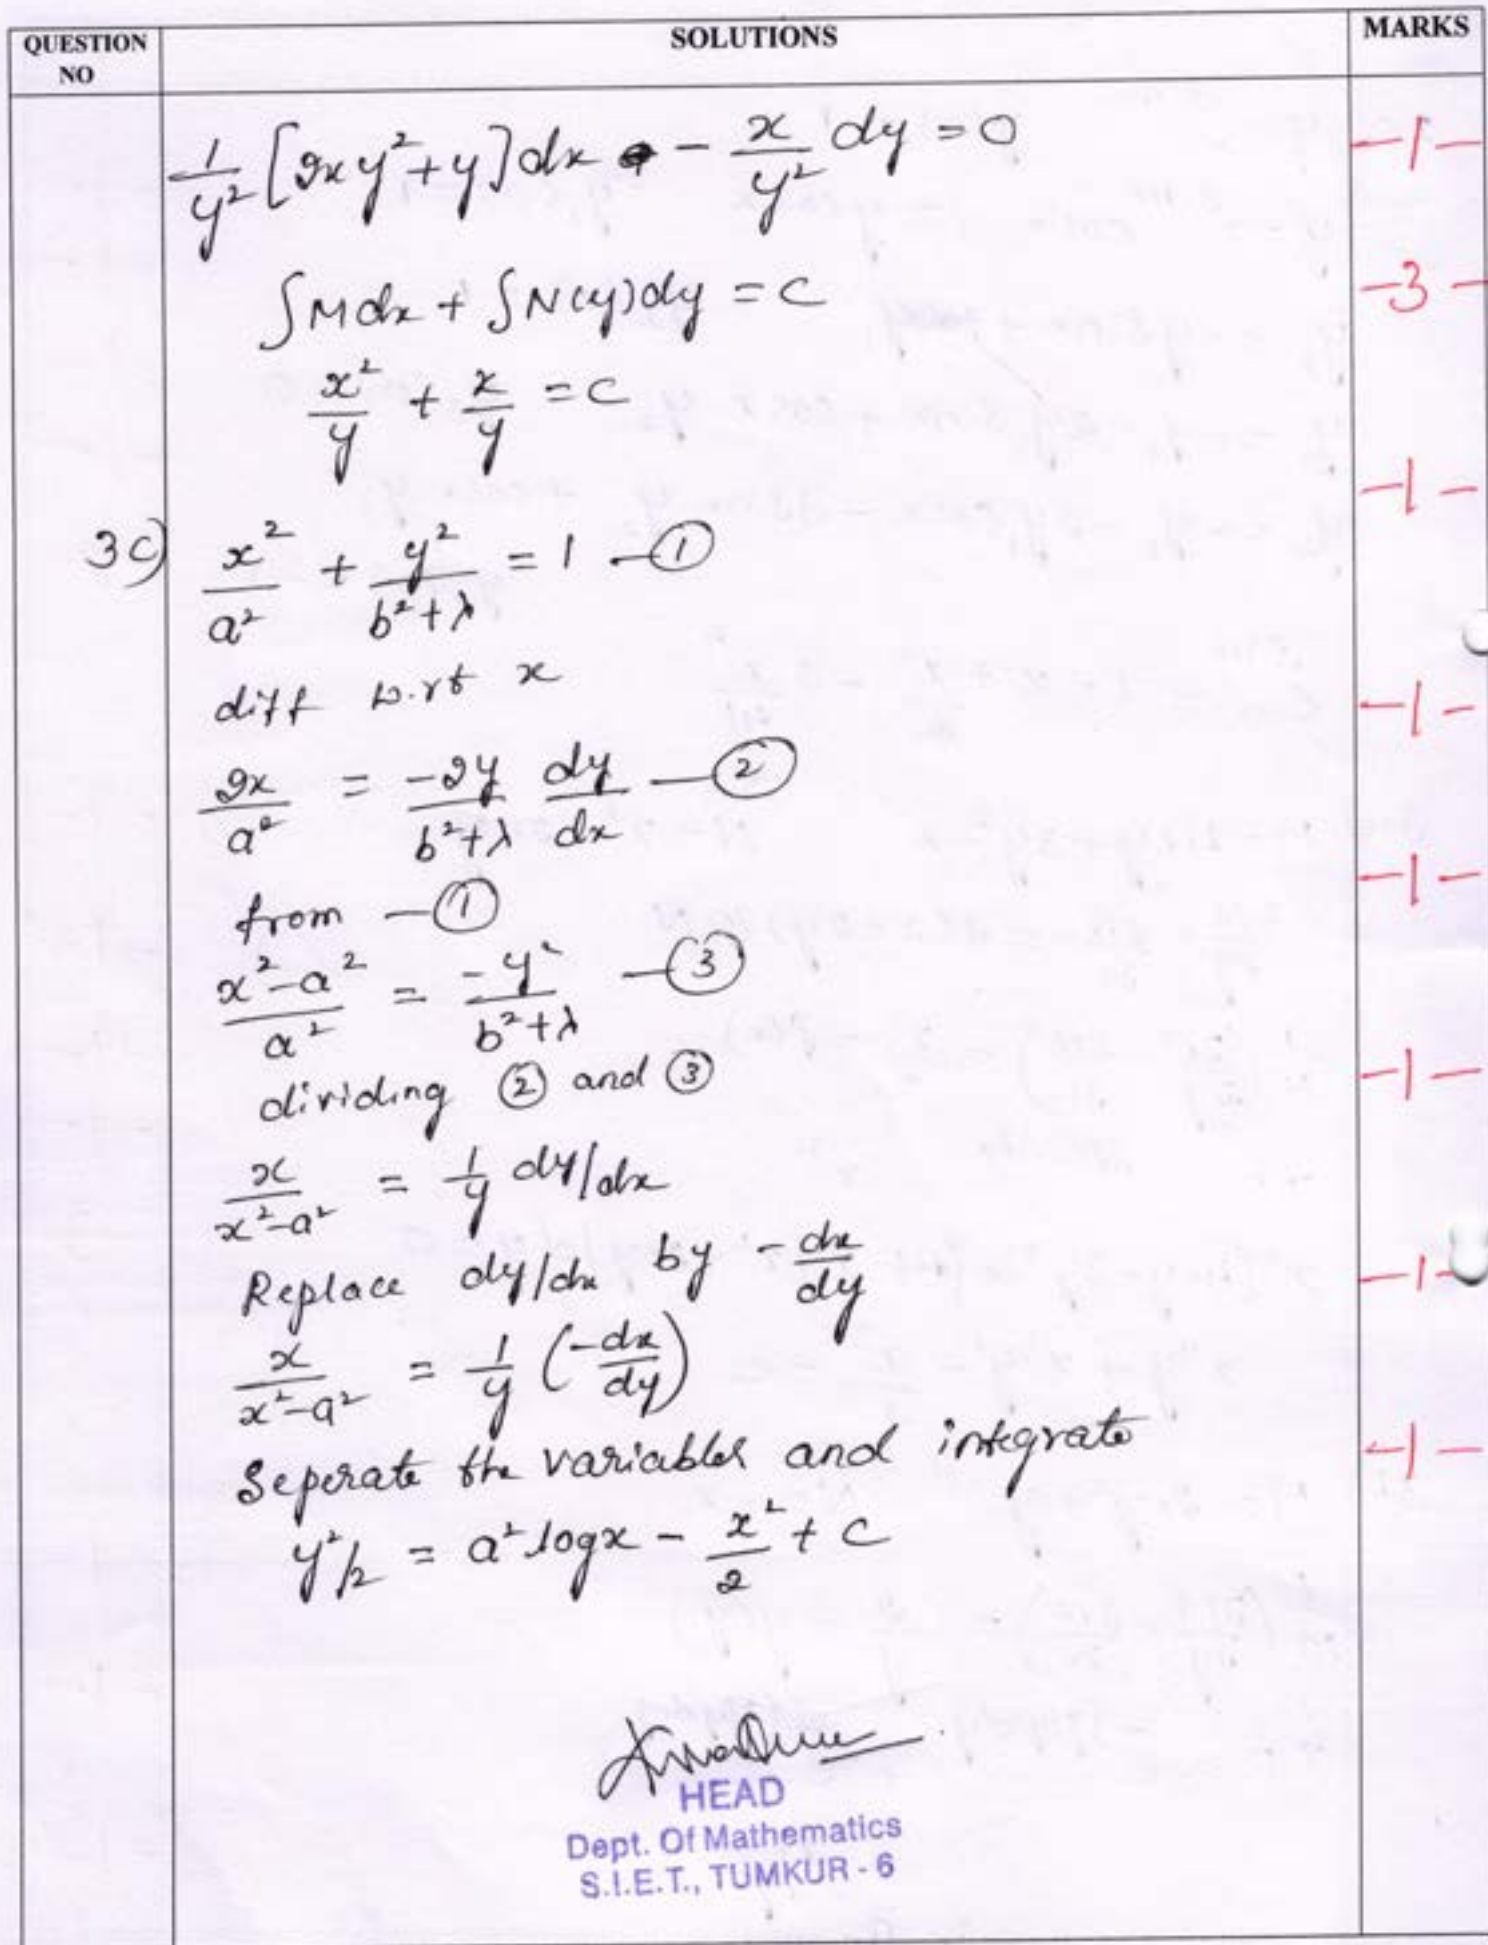 QUESTION NO
SOLUTIONS
MARKS
1/y² [2xy²+y]dx - x/y² dy = 0
-1-
∫Mdx + ∫N(y)dy = C
-3-
x²/y + x/y = C
-1-
3c) x²/a² + y²/(b²+λ) = 1 —①
diff w.rt x
-1-
2x/a² = -2y/(b²+λ) dy/dx —②
-1-
from —①
(x²-a²)/a² = -y²/(b²+λ) —③
dividing ② and ③
-1-
x/(x²-a²) = 1/y dy/dx
Replace dy/dx by -dx/dy
-1-
x/(x²-a²) = 1/y (-dx/dy)
Seperate the variables and integrate
-1-
y²/2 = a² logx - x²/2 + C
HEAD
Dept. Of Mathematics
S.I.E.T., TUMKUR - 6